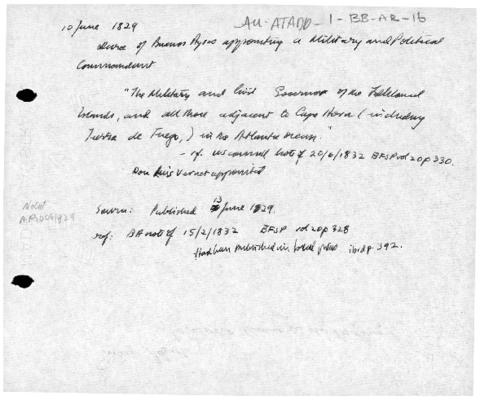 10 June 1829
AU-ATADD-1-BB-AR-16
decree of Buenos Ayres appointing a Military and Political
Commandant
"The Military and Civil Governor of the Falkland
Islands, and all those adjacent to Cape Horn (including
Tierra de Fuego,) in the Atlantic Ocean."
- cf. US consul note of 20/6/1832 BFSP vol 20 p 330.
Don Luis Vernet appointed
Source: Published 13 June 1829.
ref: BA note of 15/2/1832 BFSP vol 20 p 328
Had been published in local press ibid p. 392.